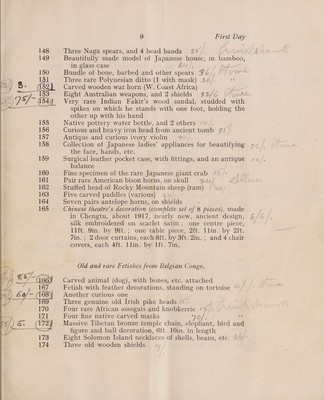 9 First Day
148 Three Naga spears, and 4 head bands 25/- Cruickshank
149 Beautifully made model of Japanese house, in bamboo,
in glass case
150 Bundle of bone, barbed and other spears 36/- Stowe
151 Three rare Polynesian ditto (1 with mask) 30/- "
152 Carved wooden war horn (W. Coast Africa)
153 Eight Australian weapons, and 2 shields 32/6
154 Very rare Indian Fakir's wood sandal, studded with
spikes on which he stands with one foot, holding the
other up with his hand
155 Native pottery water bottle, and 2 others
156 Curious and heavy iron head from ancient tomb
157 Antique and curious ivory violin
158 Collection of Japanese ladies' appliances for beautifying
the face, hands, etc.
159 Surgical leather pocket case, with fittings, and an antique
balance
160 Fine specimen of the rare Japanese giant crab
161 Pair rare American bison horns, on skull
162 Stuffed head of Rocky Mountain sheep (ram)
163 Five carved paddles (various)
164 Seven pairs antelope horns, on shields
165 Chinese theatre's decoration (complete set of 8 pieces), made
in Chengtu, about 1917, nearly new, ancient design,
silk embroidered on scarlet satin; one centre piece,
11ft. 9in. by 9ft.; one table piece, 2ft. 11in. by 2ft.
7in.; 2 door curtains, each 8ft. by 3ft. 2in.; and 4 chair
covers, each 4ft. 11in. by 1ft. 7in.
Old and rare Fetishes from Belgian Congo.
166 Carved animal (dog), with bones, etc. attached
167 Fetish with leather decorations, standing on tortoise
168 Another curious one
169 Three genuine old Irish pike heads
170 Four rare African assegais and knobkerrie
171 Four fine native carved masks 70/-
172 Massive Tibetan bronze temple chain, elephant, bird and
figure and ball decoration, 6ft. 10in. in length
173 Eight Solomon Island necklaces of shells, beans, etc.
174 Three old wooden shields